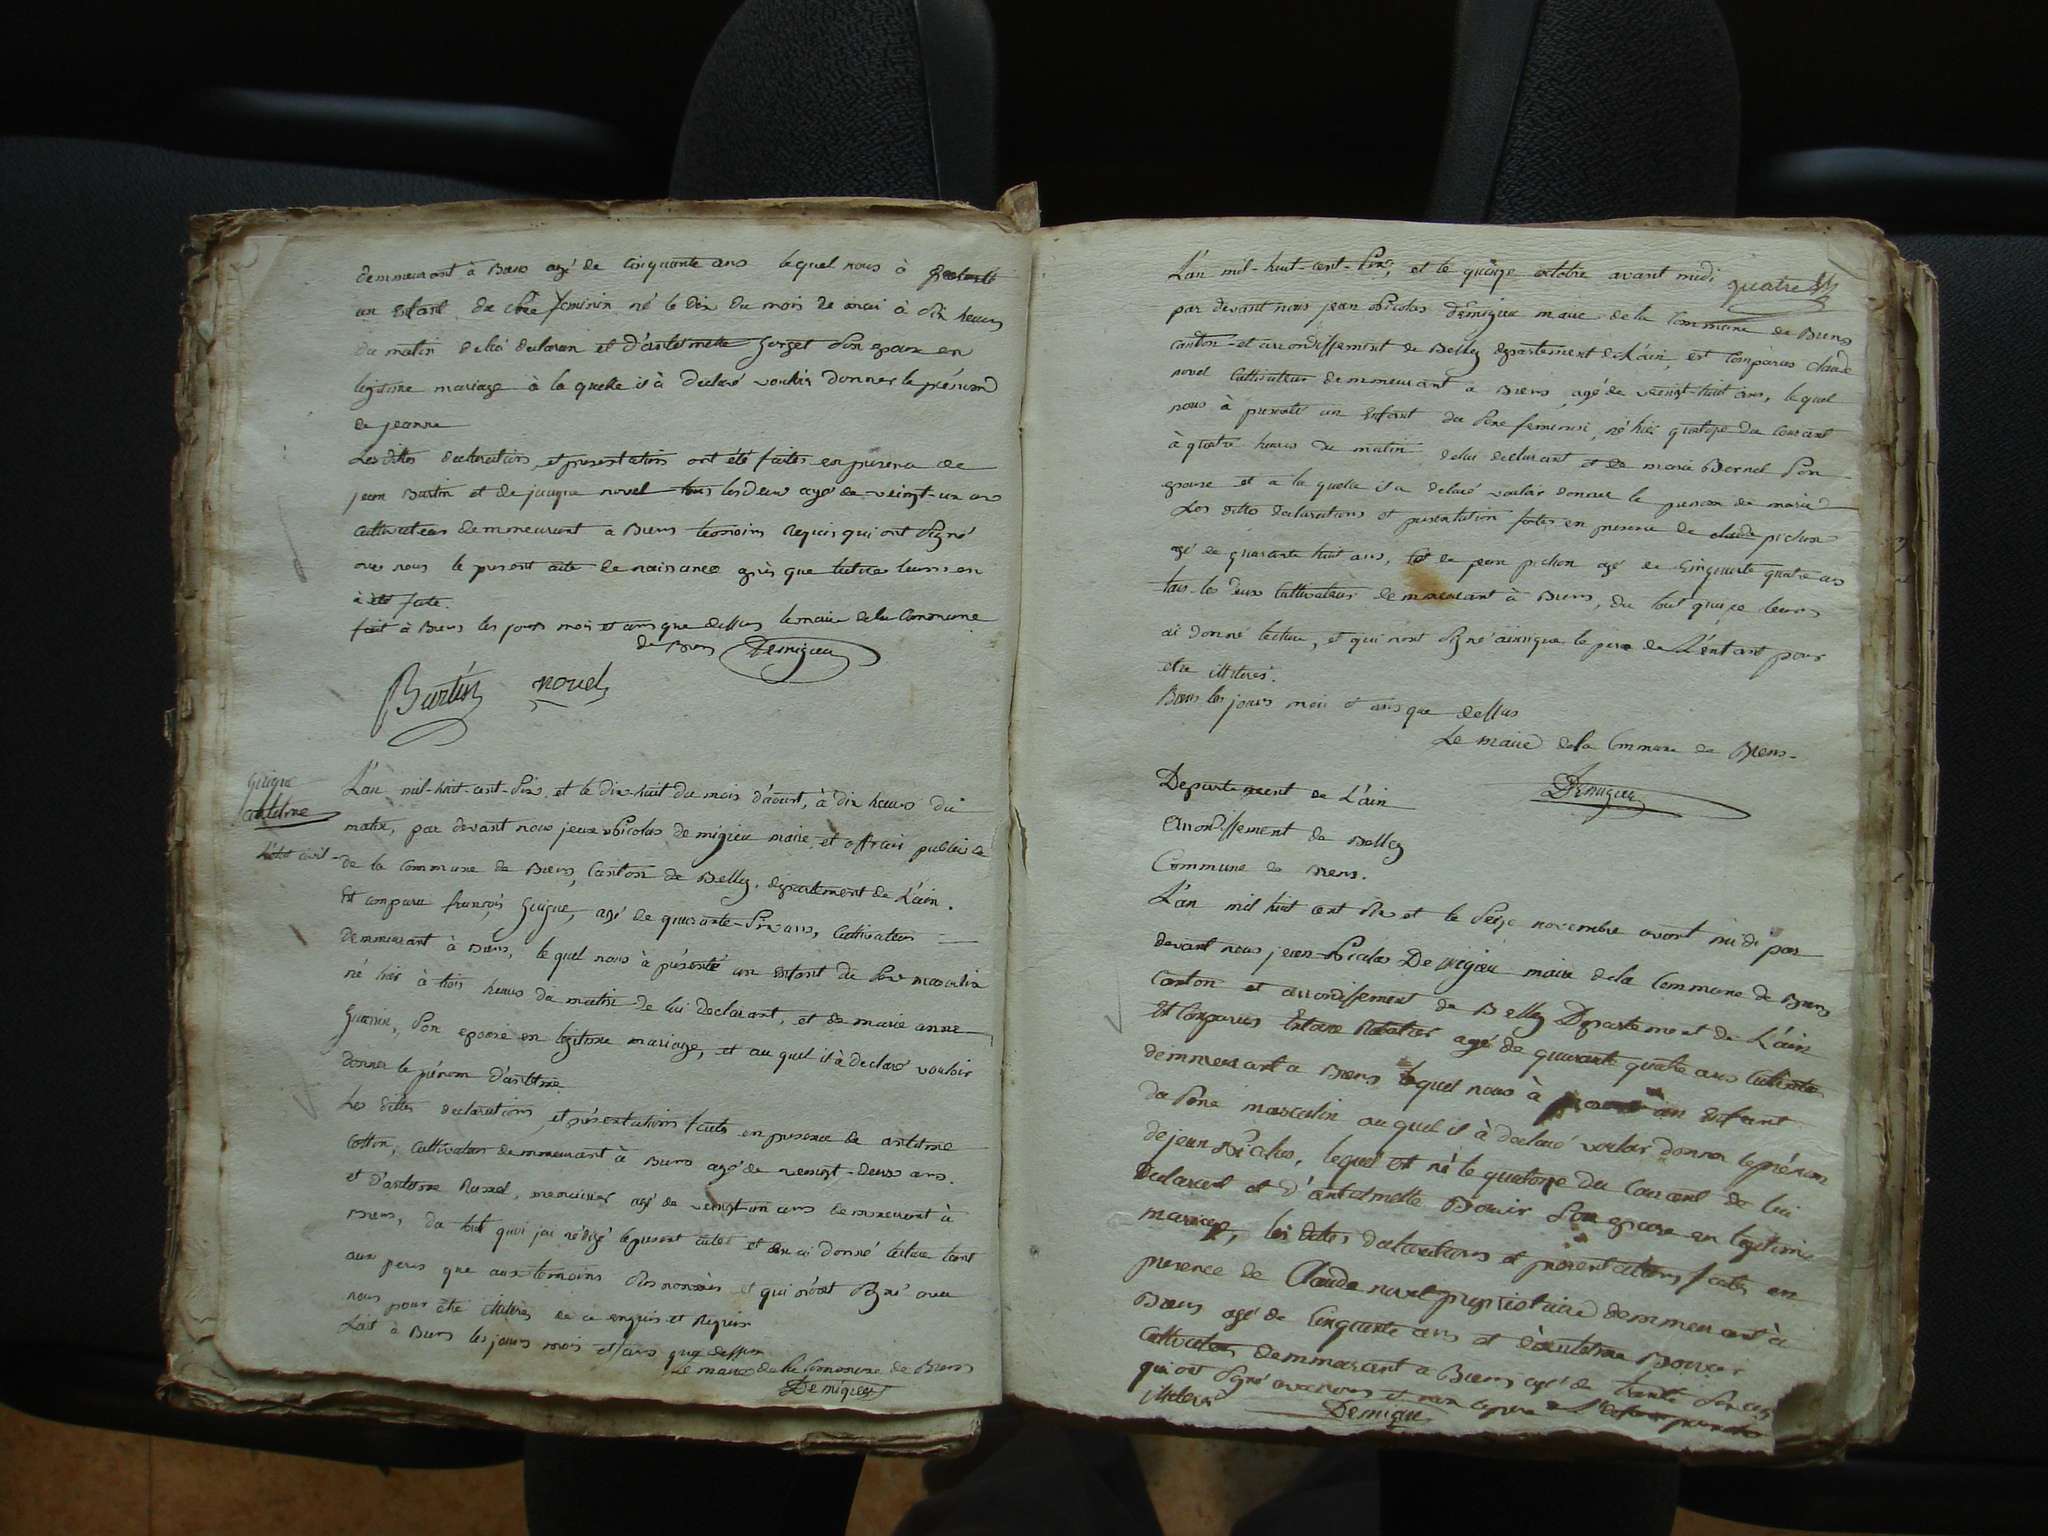 demmeurant à Biens agé de cinquante ans lequel nous à
un Enfant du sexe feminin né le dix du mois de mai à dix heures
du matin de lui declaran et d'antelmette gorget son epouse en
legitime mariage à la quelle il à declaré vouloir donner le prénom
de jeanne
Les dittes declarations, et presentation ont été faites en presence de
jean Burtin et de jacque novel tous les deux agé de veingt-un ans
cultivateurs demmeurant a Biens temoins requis qui ont signé
avec nous le present acte de naissance après que lecture leurs en
à été faite.
fait à Biens les jours mois et ans que dessus le maire de la Commune
de Biens Demigieu
Burtin novel
guigue
antelme
L'an mil-huit-cent-six, et le dix-huit du mois d'aoust, à dix heures du
matin, par devant nous jean Nicolas demigieu maire, et officier public de
l'état civil de la commune de Biens, Canton de Belley, departement de L'ain.
Est comparu françois guigue, agé de quarante-six ans, Cultivateur
demmeurant à Biens, le quel nous à présenté un enfant du sexe masculin
né hier à trois heures du matin de lui declarant, et de marie anne
son epouse en legitime mariage, et au quel il à declaré vouloir
donner le prénom d'antelme
Les dittes declarations, et présentations faites en presence de antelme
Cottin, Cultivateur demmeurant à Biens agé de veingt-deux ans.
et d'antelme menuisier agé de veingt-un ans demmeurant à
Biens, du tout quoi jai rédigé le present acte et en ai donné lecture tant
aux peres que aux temoins et qui n'ont signé avec
nous pour être illiteres de ce enquis et requis
fait à Biens les jours mois et ans que dessus
Le maire de la Commune de Biens
Demigieu
L'an mil-huit-cent-six, et le quinze octobre avant midi quatre
par devant nous jean Nicolas Demigieu maire de la Commune de Biens
canton et arrondissement de Belley departement de L'ain, est comparus claude
novel Cultivateur demmeurant a Biens, agé de veingt-huit ans, le quel
nous à presenté un enfant du sexe feminin, né hier quatorze du courant
à quatre heures du matin de lui declarant et de marie Bornel son
epouse et a la quelle il a declaré vouloir donner le prenom de marie
Les dittes declarations et presentation faites en presence de claude pichon
agé de quarante huit ans, et de jean pichon agé de cinquante quatre ans
tous les deux Cultivateurs demmeurant à Biens, du tout quoi je leurs
ai donné lecture, et qui n'ont signé ainsi que le pere de l'enfant pour
etre illiterés.
Biens les jours mois et ans que dessus
Le maire de la Commune de Biens.
Demigieu
Departement de L'ain
Arrondissement de Belley
Commune de Biens.
L'an mil huit cent six et le seize novembre avant midi par
devant nous jean-Nicolas Demigieu maire de la Commune de Biens
Canton et arrondissement de Belley Departement de L'ain
Est Comparus agé de quarante quatre ans Cultivateur
demmeurant a Biens lequel nous à un enfant
du sexe masculin au quel il à declaré vouloir donner le prénom
de jean Nicolas, lequel est né le quatorze du Courant de lui
Declarant et d'antelmette son epouse en legitime
mariage, les dittes declarations et présentations faites en
presence de Claude novel propriétaire demmeurant à
Biens agé de Cinquante ans et d'antelme
Cultivateur demmeurant a Biens agé de trente six ans
qui ont signé avec nous et non le pere de l'enfant pour etre
illiteré
Demigieu